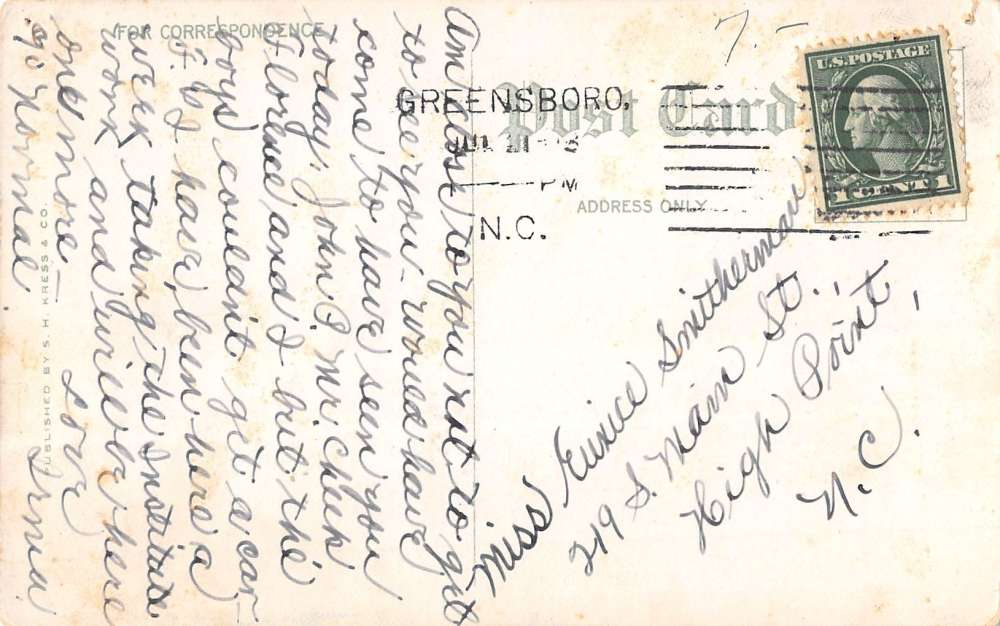 FOR CORRESPONDENCE
Am to you not to get
to see you - would have
come to have seen you
today. John Mr. Cheek
Florence and I but the
boys couldn't get a car-
I have been here a
week taking the Institute
work and will be here
one more - Love
c/o Normal Irma
PUBLISHED BY S. H. KRESS & CO.
7.-
U.S. POSTAGE
1 CENT 1
Post Card
GREENSBORO,
JUL 21
PM
N.C.
ADDRESS ONLY
Miss Eunice Smitherman
219 S. Main St.,
High Point,
N.C.